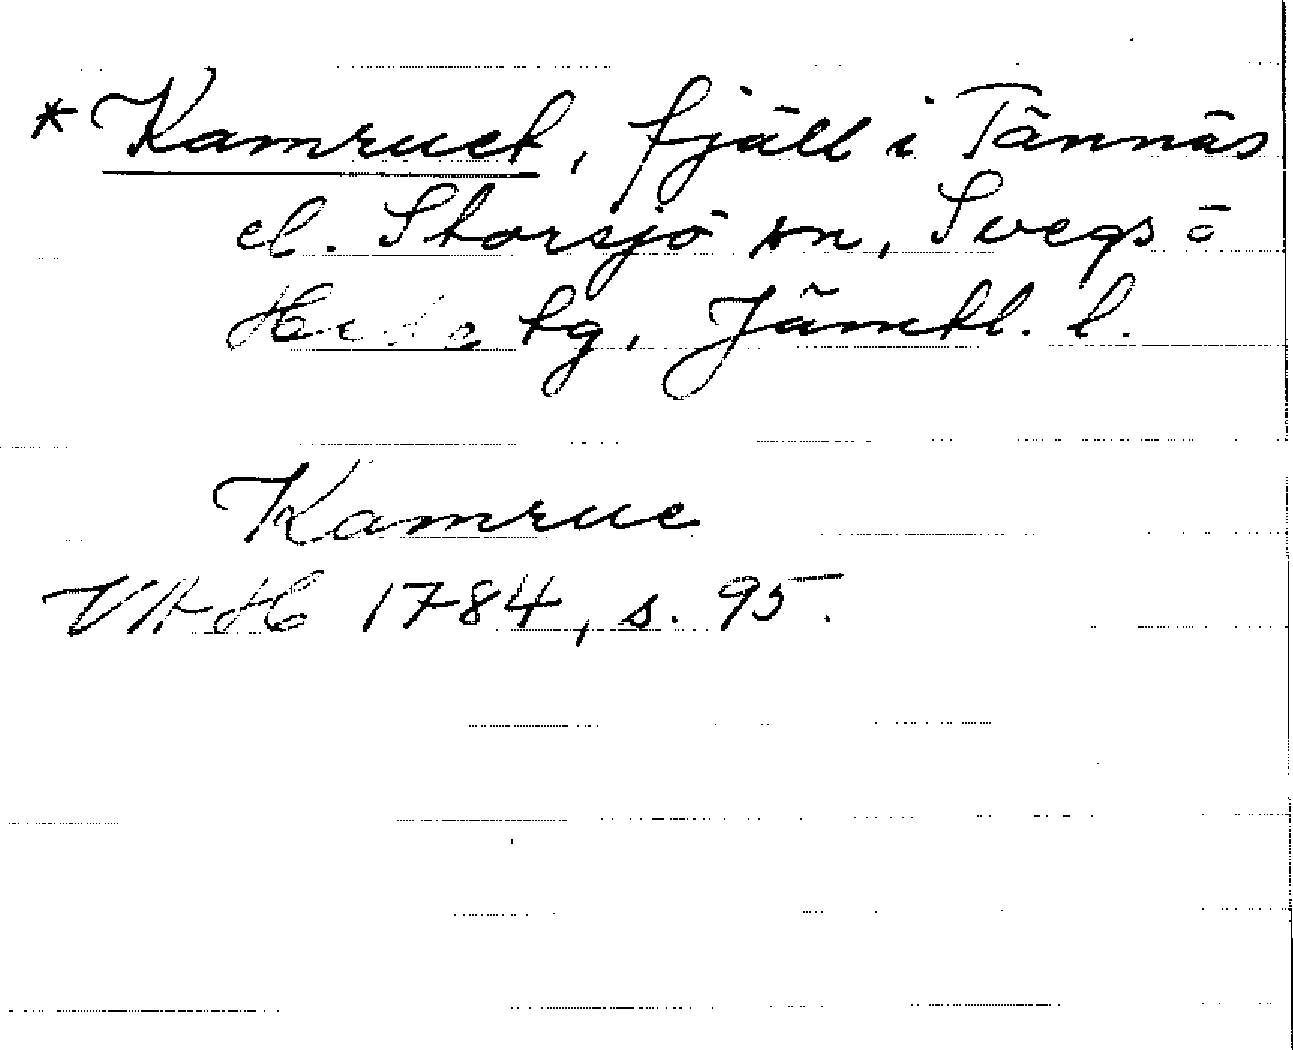 *Kamruet, fjäll i Tännäs
el. Storsjö sn, Svegs o
Hede tg, Jämtl. l.
Kamrue
VHAH 1784, s. 95.